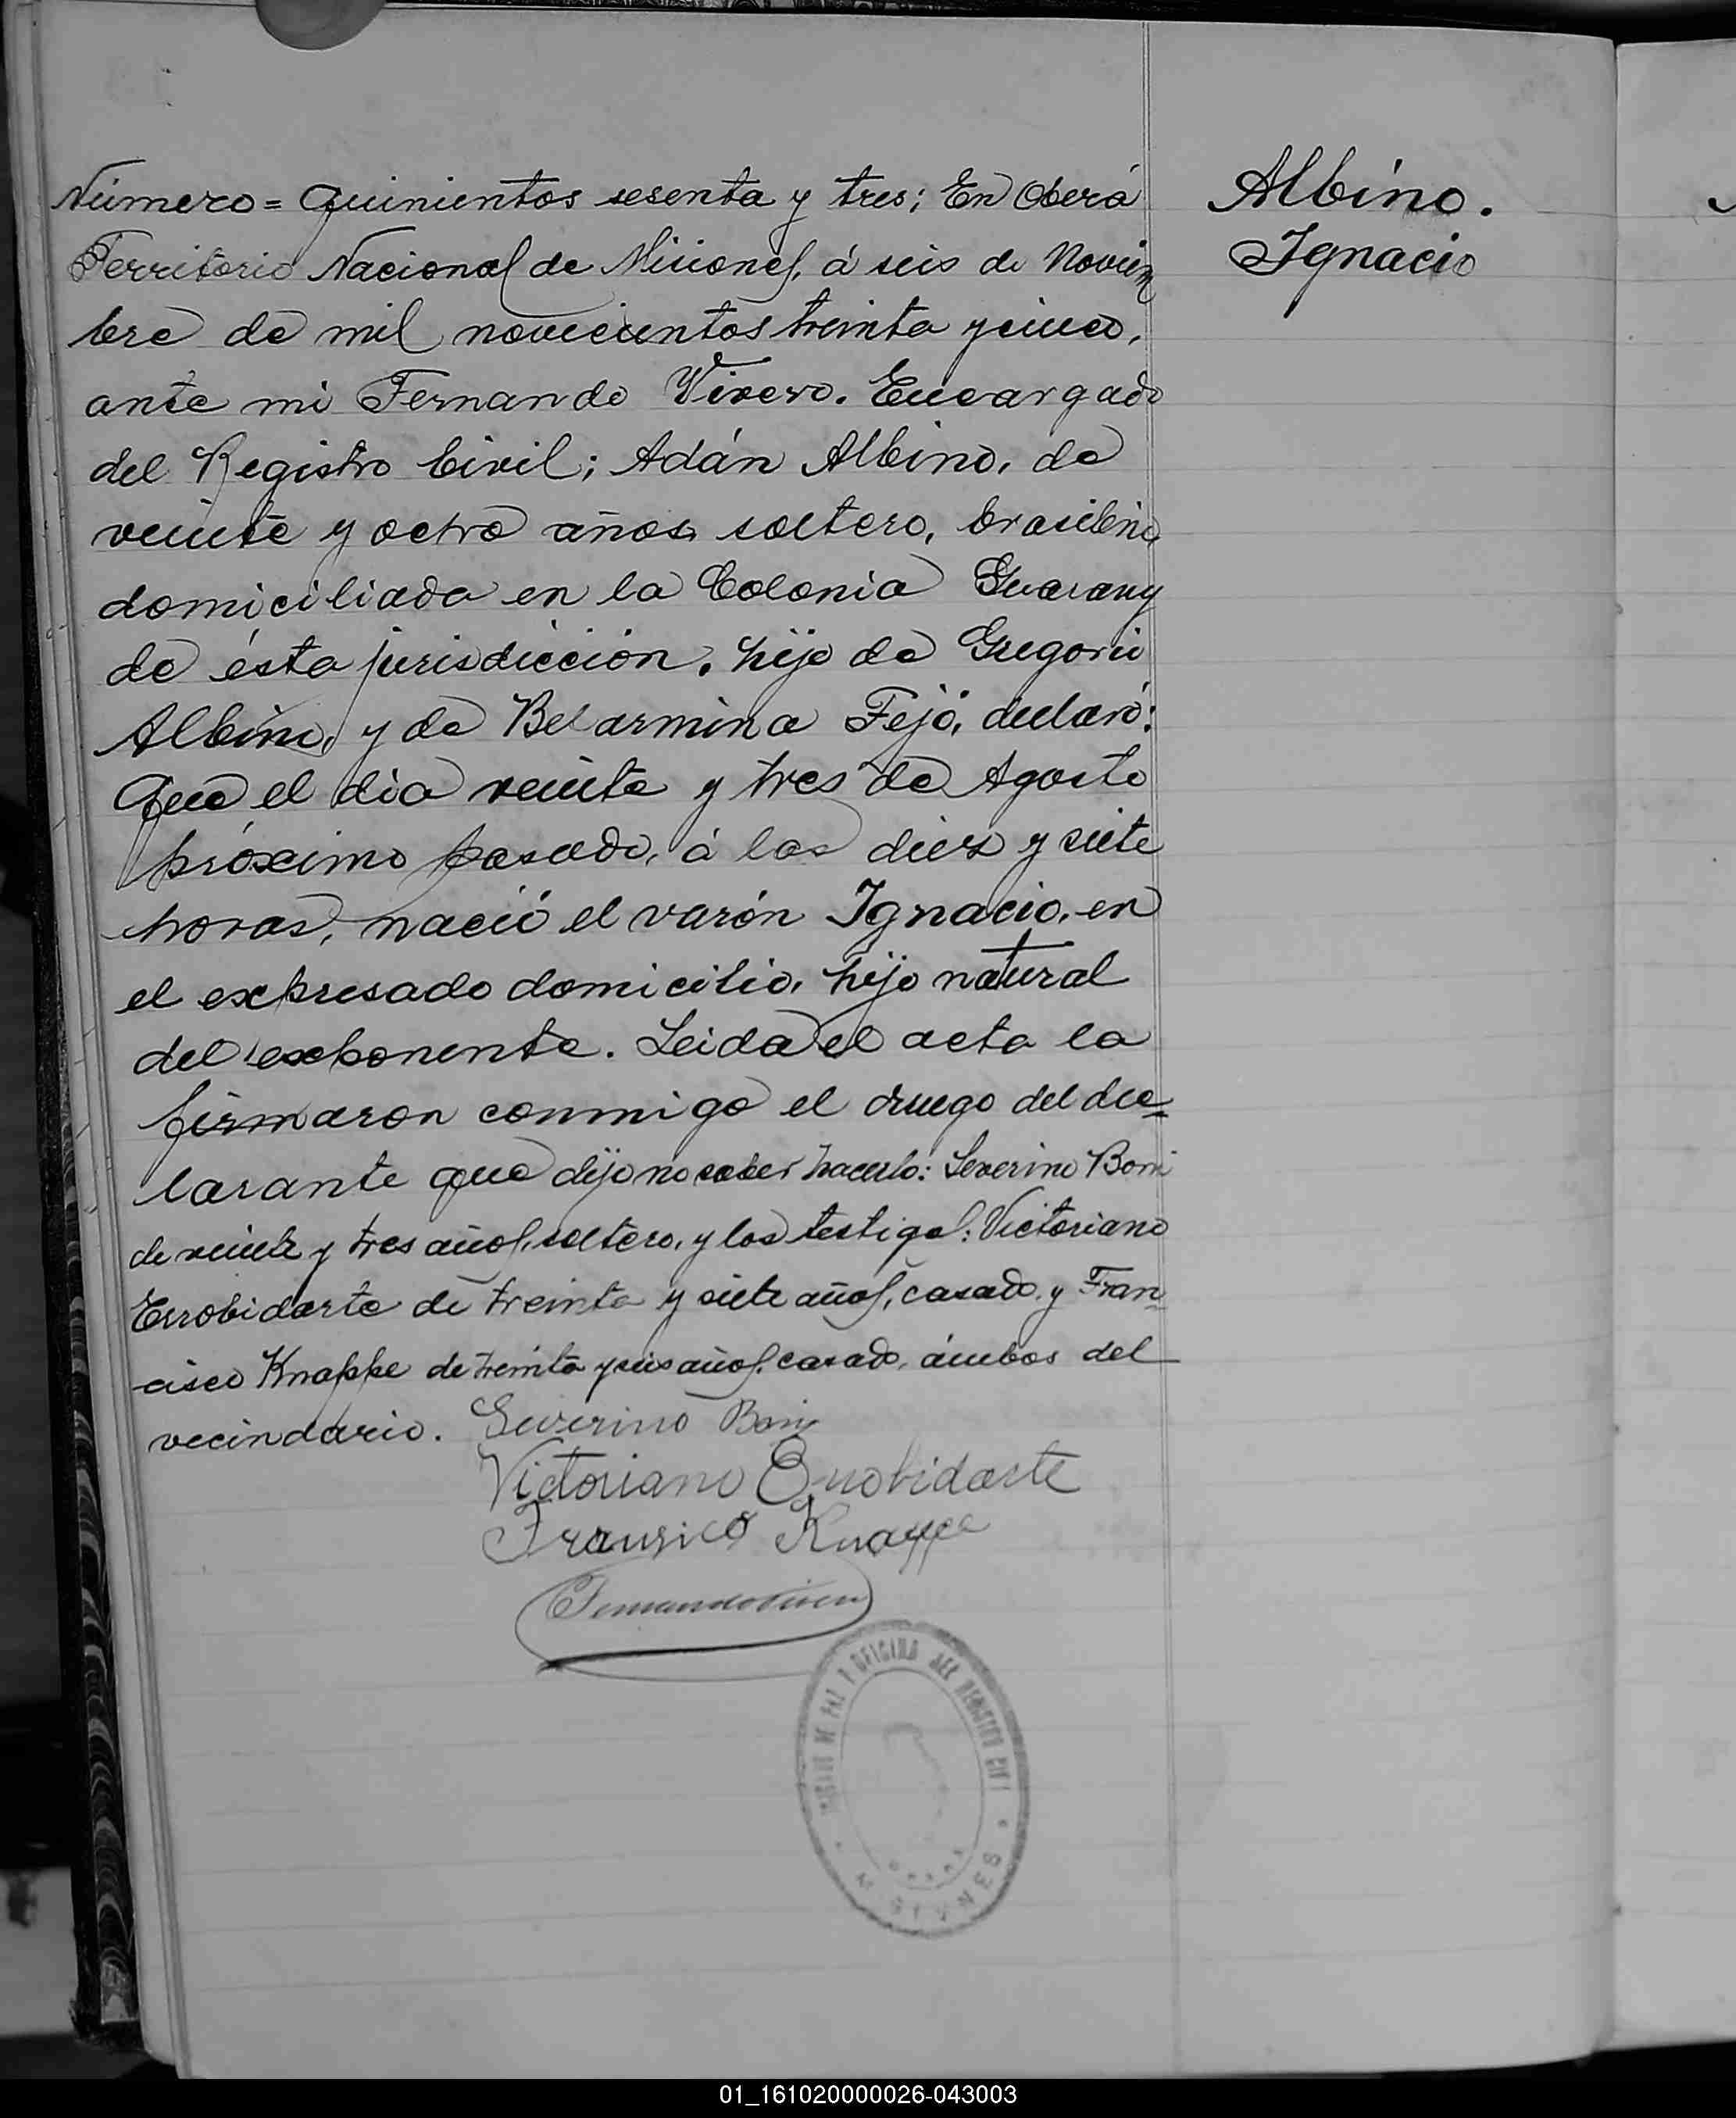 Número = Quinientos sesenta y tres; En Oberá
Territorio Nacional de Misiones, á seis de Noviem
bre de mil novecientos treinta y cinco,
ante mi Fernando Vivero. Encargado
del Registro Civil; Adán Albino, de
veinte y ocho años soltero, brasileño
domiciliado en la Colonia Guarany
de ésta jurisdicción, hijo de Gregorio
Albino, y de Belarmina Fejó, declaró:
Que el día veinte y tres de Agosto
próximo pasado, á las diez y siete
horas, nació el varón Ignacio, en
el expresado domicilio, hijo natural
del exponente. Leida el acta la
firmaron conmigo el druego del dec=
larante que dijo no saber hacerlo: Severino Boni
de veinte y tres años, soltero, y los testigos: Victoriano
Errobidarte de treinta y siete años, casado, y Fran=
cisco Knappe de treinta y seis años, casado, ámbos del
vecindario. Severino Boni
Victoriano Errobidarte
Fransico Knappe
Fernando Vivero
Albino.
Ignacio
JUZGADO DE PAZ Y OFICINA DEL REGISTRO CIVIL
MISIONES
01_161020000026-043003